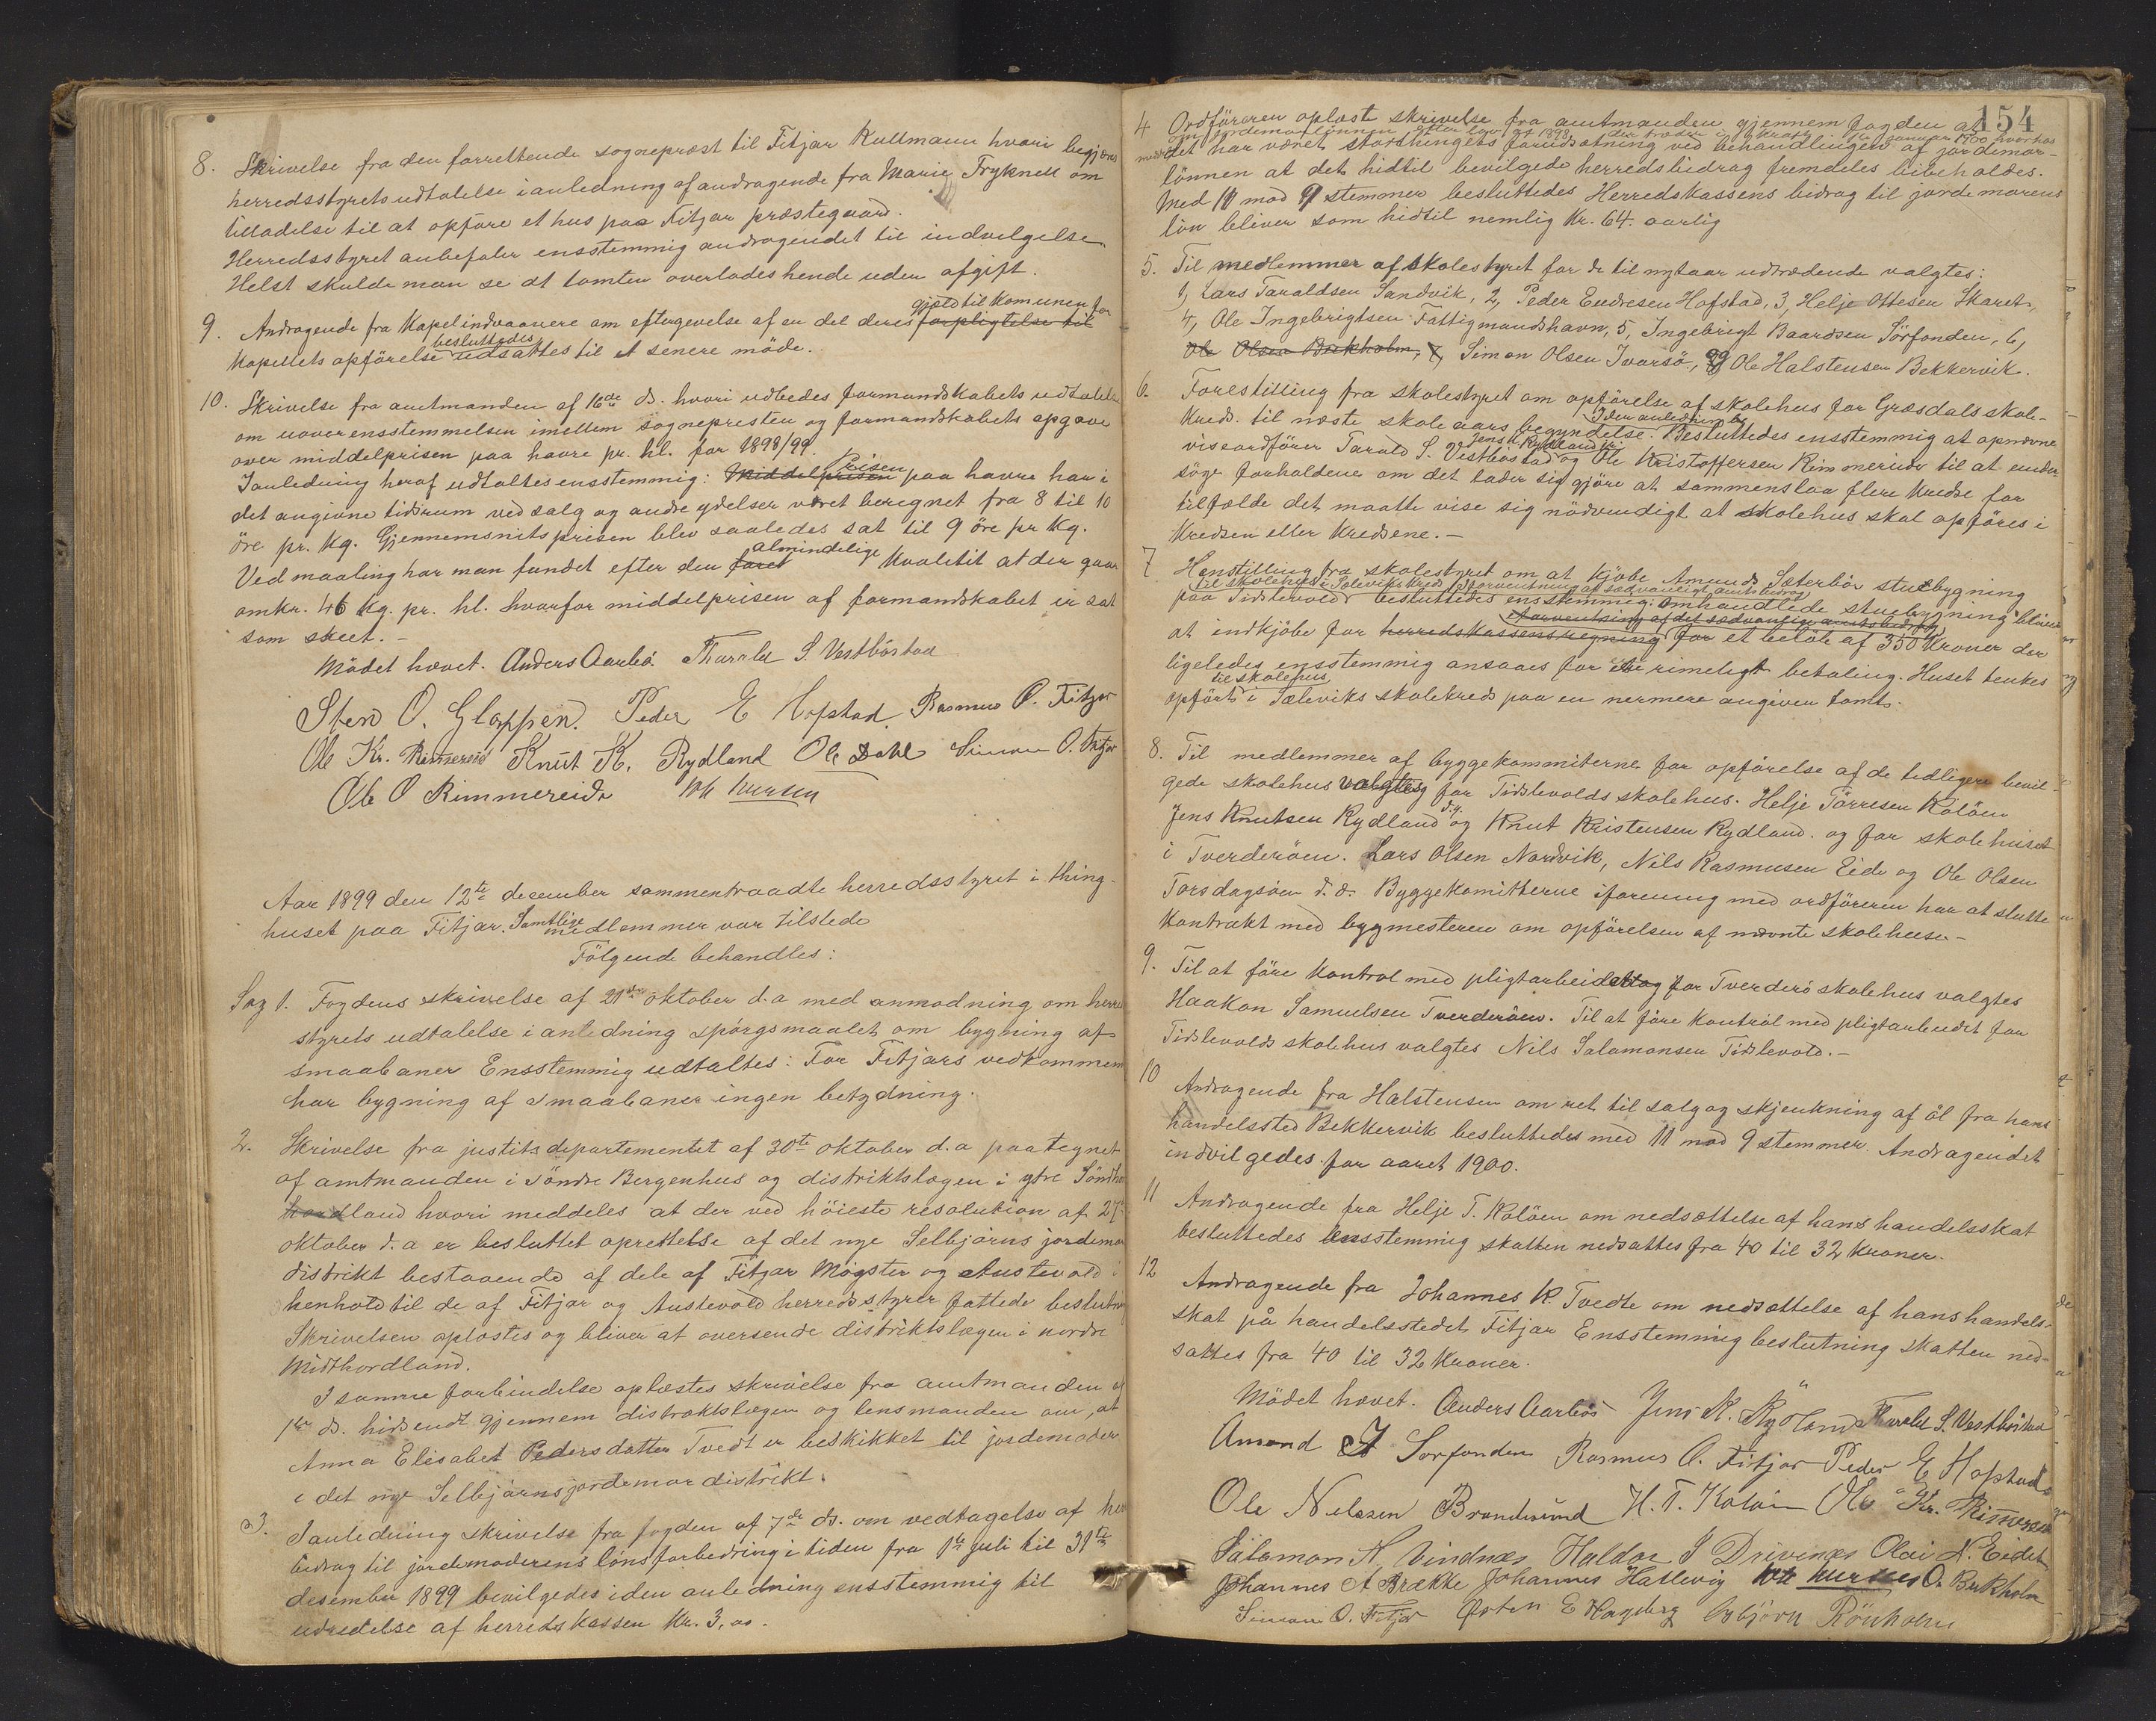 8. Skrivelse fra den forrettende sogneprest til Fitjar Kullmann hvori begjæres
herredsstyrets udtalelse i anledning af andragende fra Marie Fryknell om
tilladelse til at opføre et hus paa Fitjar præstegaard.
Herredsstyret anbefaler ensstemmig andragendet til indvilgelse.
Helst skulde man se at tomten overlades hende uden afgift.
gjæld til Komunen for
9. Andragende fra Kapelindvaanere om eftergivelse af en del deres forpligtelse til
besluttedes
Kapellets opførelse udsattes til et senere möde.
10. Skrivelse fra amtmanden af 16de ds. hvori udbedes formandskabets udtalelse
om uoverensstemmelsen imellem sognepresten og formandskabets opgave
over middelprisen paa havre pr. hl. for 1898/99.
Prisen
I anledning heraf udtaltes ensstemmig: Middelprisen paa havre har i
det angivne tidsrum ved salg og andre ydelser været beregnet fra 8 til 10
öre pr. Kg. Gjennemsnitsprisen blev saaledes sat til 9 öre pr Kg.
almindelige
Ved maaling har man fundet efter den Kvalitet at der gaar
omkr. 46 Kg. pr. hl. hvorfor middelprisen af formandskabet er sat
som skeet. -
Mödet hævet. Anders Aarbö Tharald S. Vestböstad
Sten O. Gloppen. Peder E Hofstad Rasmus O. Fitjar
Ole Kr. Rimereid Knut K. Rydland Ole Dahl Simon O. Fitjar
Ole O Rimmereide
Aar 1899 den 12te december sammentraadte herredsstyret i thing-
huset paa Fitjar. Samtlige medlemmer var tilstede
Fölgende behandles:
Sag 1. Fogdens skrivelse af 21de oktober d.a med anmodning om herreds
styrets udtalelse i anledning spörgsmaalet om bygning af
smaabaner Ensstemmig udtaltes: For Fitjars vedkommen
har bygning af smaabaner ingen betydning.
2. Skrivelse fra justitsdepartementet af 30te oktober d.a paategnet
af amtmanden i Söndre Bergenhus og distriktslægen i ytre Söndhord
hordland hvori meddeles at der ved höieste resolution af 27
oktober d.a er besluttet oprettelse af det nye Selbjørns jordemor
distrikt bestaaende af dele af Fitjar Møgster og Austevold i
henhold til de af Fitjar og Austevold herredsstyrer fattede beslutning
Skrivelsen oplæstes og bliver at oversende distriktslægen i nordre
Midthordland.
I samme forbindelse oplæstes skrivelse fra amtmanden af
1ste ds. hidsendt gjennem distriktslægen og lensmanden om, at
Anna Elisabet Pedersdatter Tvedt er beskikket til jordemoder
i det nye Selbjörns jordemordistrikt.
3. I anledning skrivelse fra fogden af 7de ds. om vedtagelse af her
bidrag til jordemoderens lönsforbedring i tiden fra 1ste juli til 31te
desember 1899 bevilgedes i den anledning ensstemmig til
udredelse af herredskassen Kr. 3,00.
154
4 Ordföreren oplæste skrivelse fra amtmanden gjennem fogden at
om jordemorlönnen efter lov af 1898 der træder i kraft januar 1900 hvorhos
det har været storthingets forudsætning ved behandlingen af jordemor-
lönnen at det hidtil bevilgede herredsbidrag fremdeles bibeholdes.
Med 11 mod 9 stemmer besluttedes Herredskassens bidrag til jordemorens
lön bliver som hidtil nemlig Kr. 64. aarlig
5. Til medlemmer af skolestyret for de til nytaar udtrædende valgtes:
1, Lars Taraldsen Sandvik, 2, Peder Endresen Hofstad, 3, Helje Ottesen Skaret,
4, Ole Ingebrigtsen Fattigmandshavn, 5, Ingebrigt Baardsen Sörfonden, 6,
Ole Olsen Bækholm, 7, Simon Olsen Ivarsö, og Ole Halstensen Bekkervik.
6. Forestilling fra skolestyret om opförelse af skolehus for Græsdals skole-
I den anledning
Kreds til næste skoleaars begyndelse. Besluttedes ensstemmig at opnævne
Jens K Rydland
viseordförer Tarald S. Vestböstad og Ole Kristoffersen Rimmereide til at under-
söge forholdene om det lader sig gjöre at sammenslaa flere Kredse for
tilfælde det maatte vise sig nödvendigt at skolehus skal opföres i
Kredsen eller Kredsene. -
7 Henstilling fra skolestyret om at kjöbe Amunds Sæterbön stuebygning
til skolehus i Sæleviks Kreds i forventning af sædvanligt amtsbidrag
paa Tislevold besluttedes ensstemmig: omhandlede stuebygning bliver
forventning af det sædvanlige amtsbidrag
at indkjöbe for herredskassens regning for et belöb af 350 Kroner der
ligeledes ensstemmig ansaaes for en rimeligt betaling. Huset tenkes
til skolehus
opfört i Sæleviks skolekreds paa en nermere angiven tomt.
8. Til medlemmer af byggekommiterne for opförelse af de tidligere bevil-
gede skolehus valgtes for Tislevolds skolehus. Helje Törresen Kalöen
d.y.
Jens Knutsen Rydland og Knut Kristensen Rydland. og for skolehuset
i Tverderöen. Lars Olsen Nordvik, Nils Rasmusen Eide og Ole Olsen
Torsdagsöen d.æ. Byggekomitterne i forening med ordföreren har at slutte
Kontrakt med bygmesteren om opförelsen af nævnte skolehuse -
9. Til at före Kontrol med pligtarbeidet for Tverderö skolehus valgtes
Haakon Samuelsen Tverderöen. Til at före Kontrol med pligtarbeidet for
Tislevolds skolehus valgtes Nils Salamonsen Tislevold. -
10 Andragende fra Halstensen om ret til salg og skjenkning af öl fra hans
handelssted Bekkervik besluttedes med 11 mod 9 stemmer. Andragendet
indvilgedes for aaret 1900.
11 Andragende fra Helje T. Kalöen om nedsættelse af hans handelsskat
besluttedes Ensstemmig skatten nedsattes fra 40 til 32 Kroner.
12 Andragende fra Johannes K. Tvedte om nedsættelse af hans handels-
skat på handelsstedet Fitjar Ensstemmig beslutning skatten ned-
sattes fra 40 til 32 Kroner.
Mödet hævet. Anders Aarbö Jens K. Rydland Tharald S. Vestböstad
Amund I Sorfonden Rasmus O. Fitjar Peder E Hofstad
Ole Nilssen Brandasund H. T. Kalöen Ole Kr. Rimereid
Salamon N. Vindnæs Haldor J Drivenes Olai N. Eidet
Johannes A Brække Johannes Hatlevig O. Bekholm
Simon O. Fitjar Østen E Hagaberg Esbjörn Rönholm